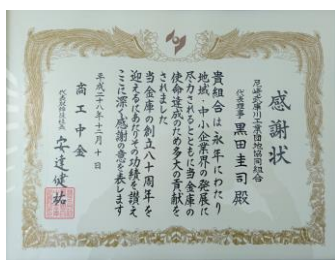 感謝状
尼崎武庫川工業団地協同組合
代表理事 黒田圭司 殿
貴組合は永年にわたり
地域・中小企業界の発展に
尽力されるとともに当金庫の
使命達成のため多大の貢献を
されました
当金庫の創立八十周年を
迎えるにあたりその功績を讃え
ここに深く感謝の意を表します
平成二十八年十二月十日
商工中金
代表取締役社長 安達健祐